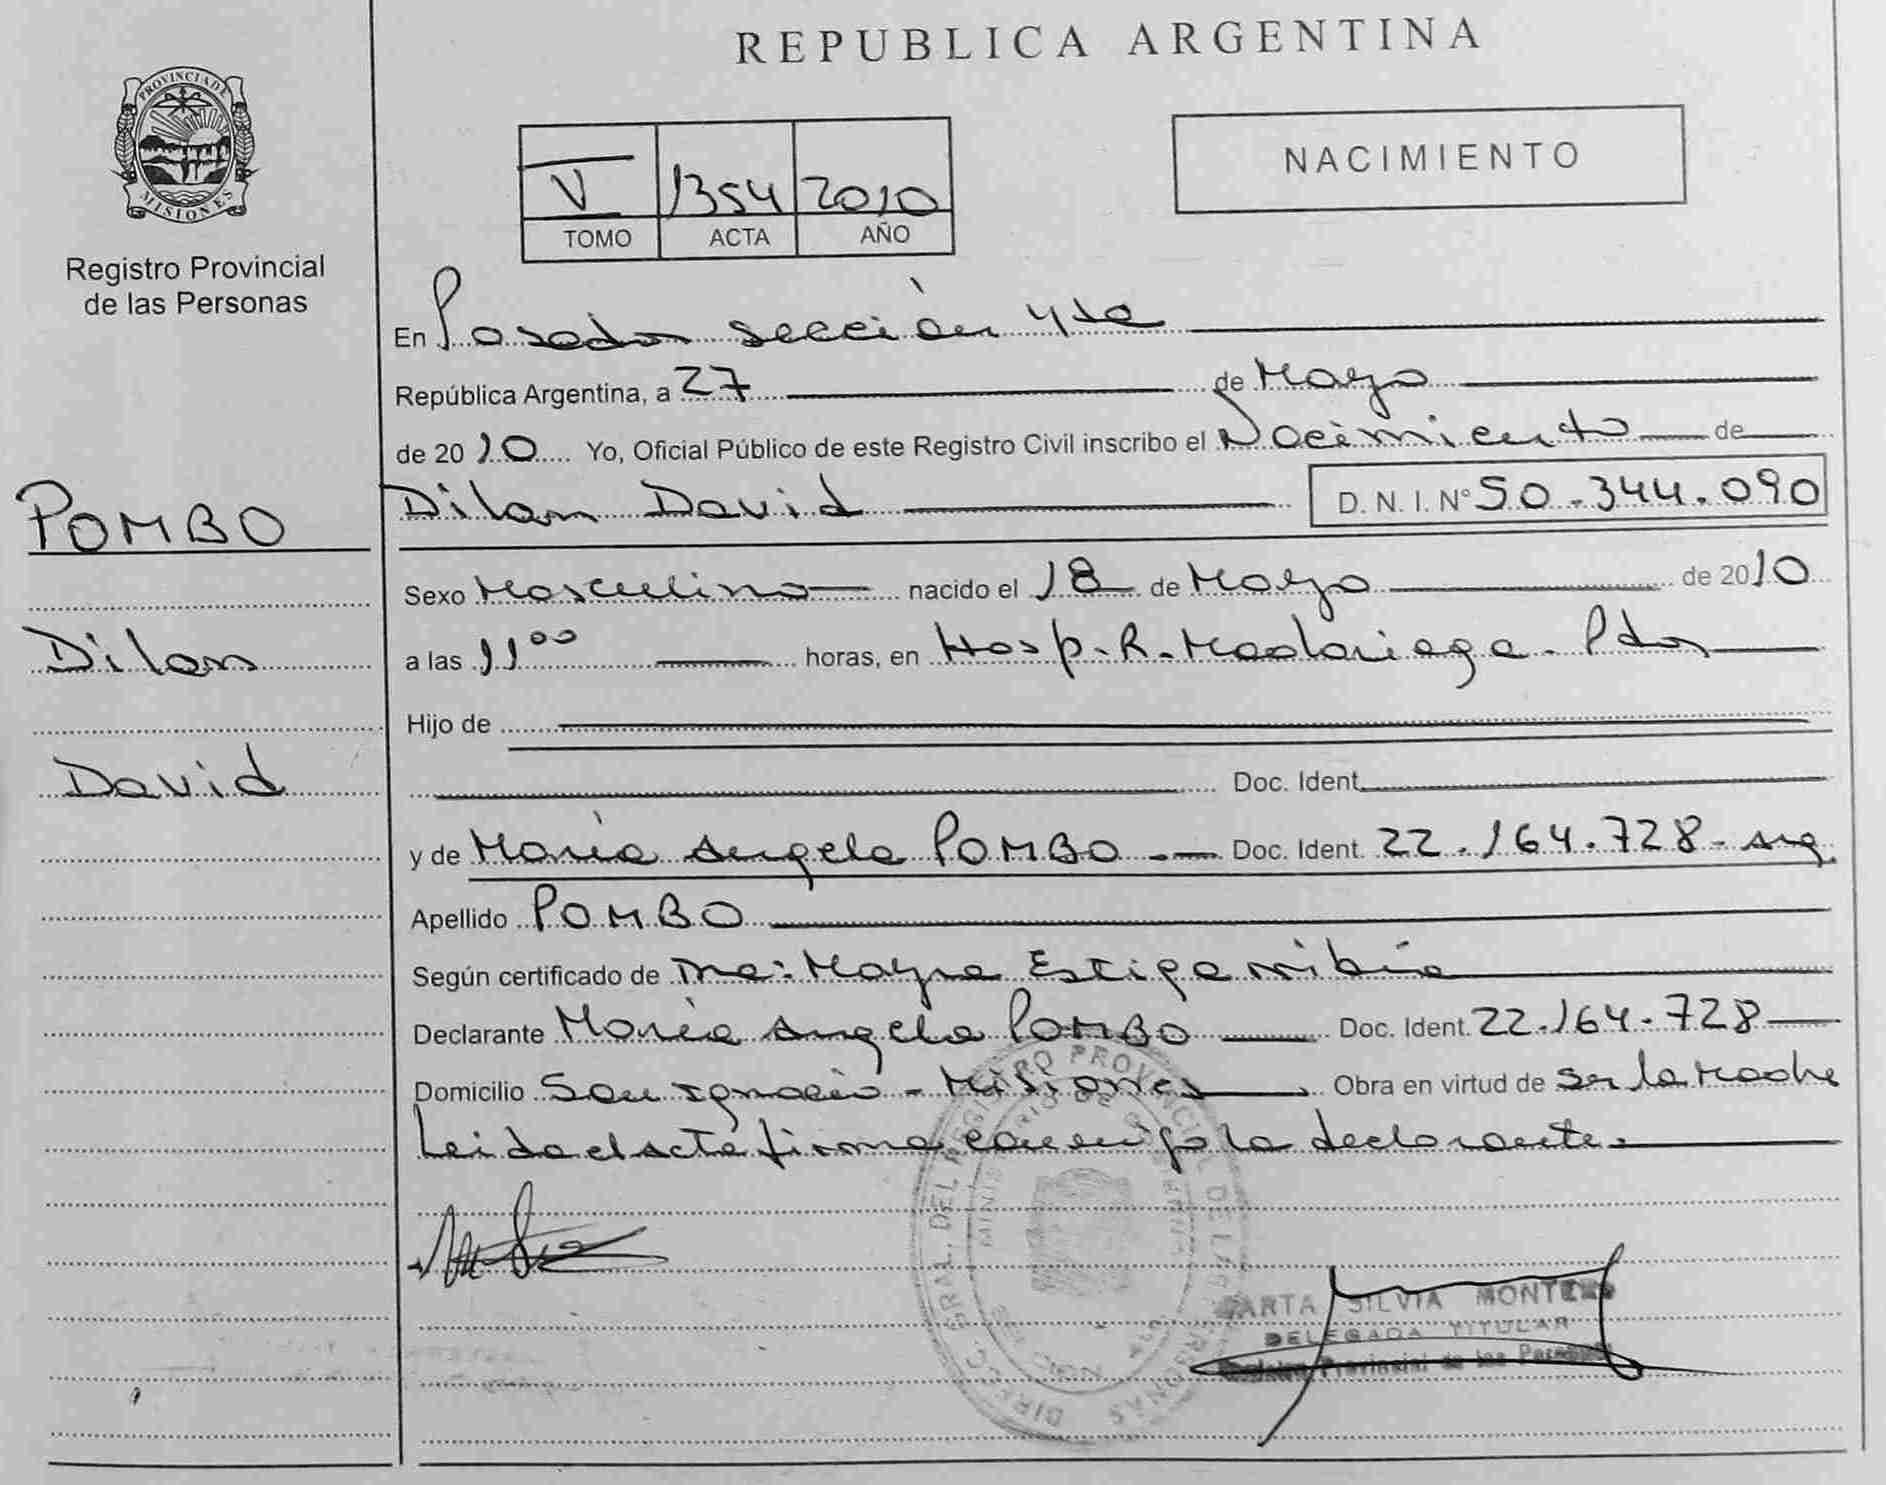 REPUBLICA ARGENTINA
PROVINCIA DE MISIONES
Registro Provincial
de las Personas
NACIMIENTO
V 1354 2010
TOMO ACTA AÑO
En Posadas sección 4ta
República Argentina, a 27 de Mayo
de 2010 Yo, Oficial Público de este Registro Civil inscribo el Nacimiento de
POMBO
Dilan David D. N. I. N° 50.344.090
Sexo Masculino nacido el 18 de Mayo de 2010
Dilan
a las 11 00 horas, en Hosp. R. Madariaga. Pdas
Hijo de
David
Doc. Ident.
y de María Angela POMBO Doc. Ident. 22.164.728 - arg.
Apellido POMBO
Según certificado de Mayra Estigarribia
Declarante María Angela POMBO Doc. Ident. 22.164.728
Domicilio San Ignacio - Misiones Obra en virtud de ser la Madre
Leida el acta firma conmigo la declarante.
DIRECC. GRAL. DEL REGISTRO PROVINCIAL DE LAS PERSONAS
SILVIA
DELEGADA TITULAR
Provincial de las